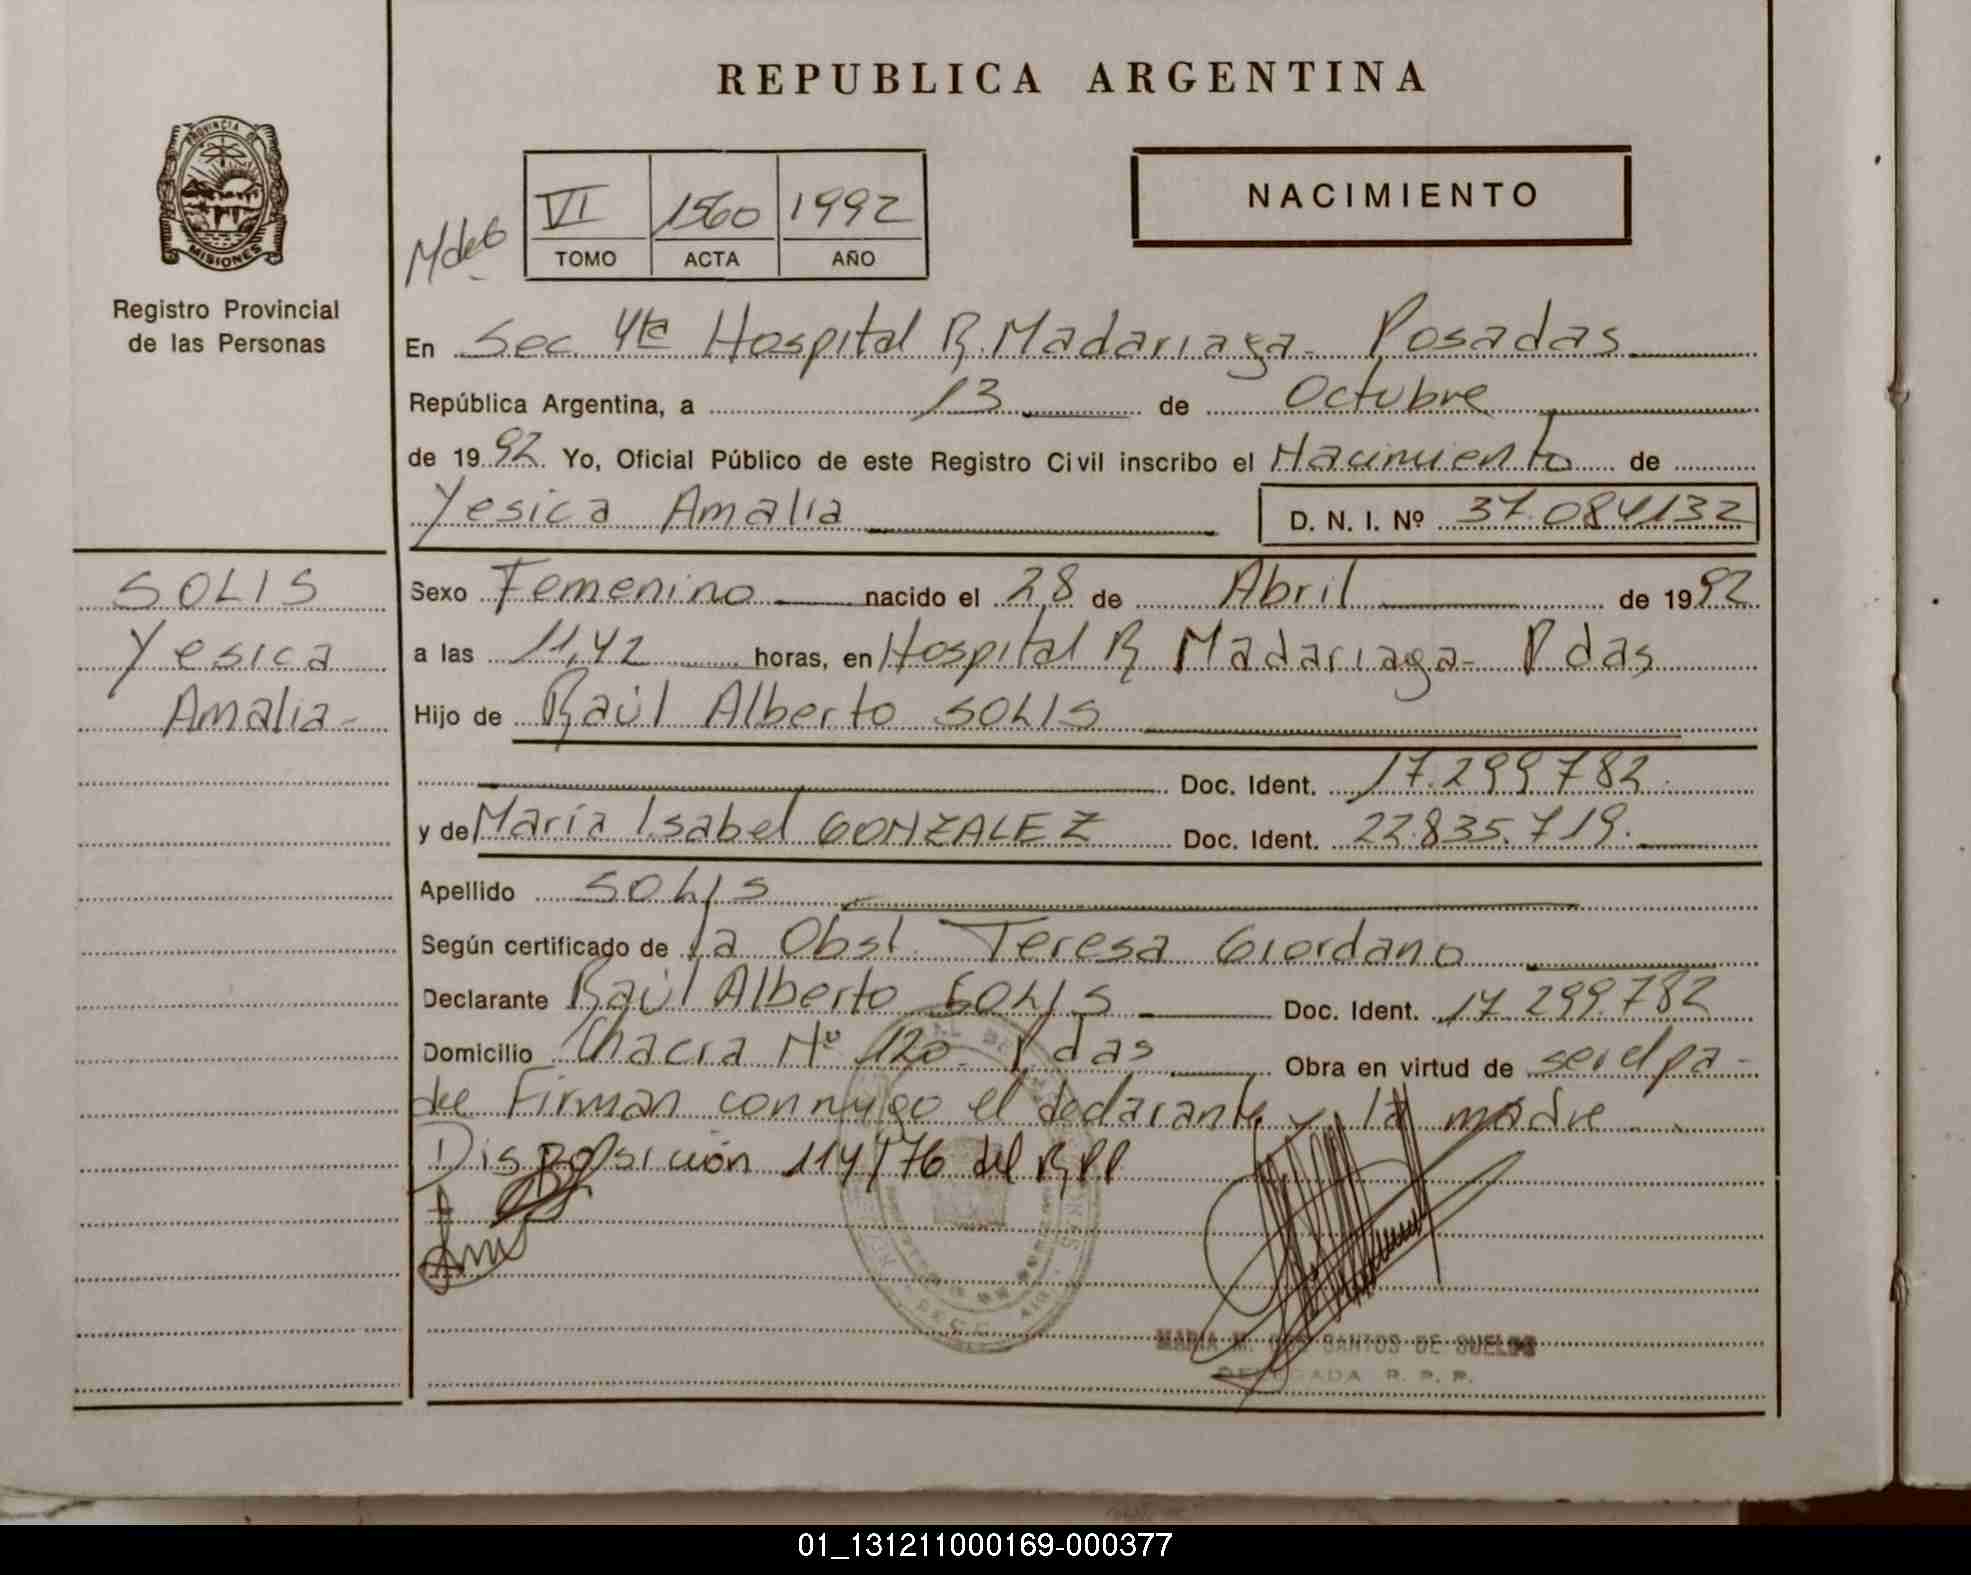 REPUBLICA ARGENTINA
PROVINCIA DE
MISIONES
Registro Provincial
de las Personas
VI 1560 1992
TOMO ACTA AÑO
NACIMIENTO
En Sec 4ta Hospital R. Madariaga - Posadas
República Argentina, a 13 de Octubre
de 1992 Yo, Oficial Público de este Registro Civil inscribo el Nacimiento de
Yesica Amalia D. N. I. Nº 37.084132
SOLIS
Yesica
Amalia-
Sexo Femenino nacido el 28 de Abril de 1992
a las 11,42 horas, en Hospital R Madariaga - Pdas
Hijo de Raúl Alberto SOLIS
Doc. Ident. 17.299.782.
y de María Isabel GONZALEZ Doc. Ident. 22.835.719.
Apellido SOLIS
Según certificado de la Obst. Teresa Giordano
Declarante Raúl Alberto SOLIS Doc. Ident. 17.299.782
Domicilio Chacra Nº 120 - Pdas Obra en virtud de ser el pa-
dre Firman conmigo el declarante y la madre
Disposición 114/76 del RPP
MARIA M. DOS SANTOS DE SUELOS
DELEGADA R. P. P.
01_131211000169-000377